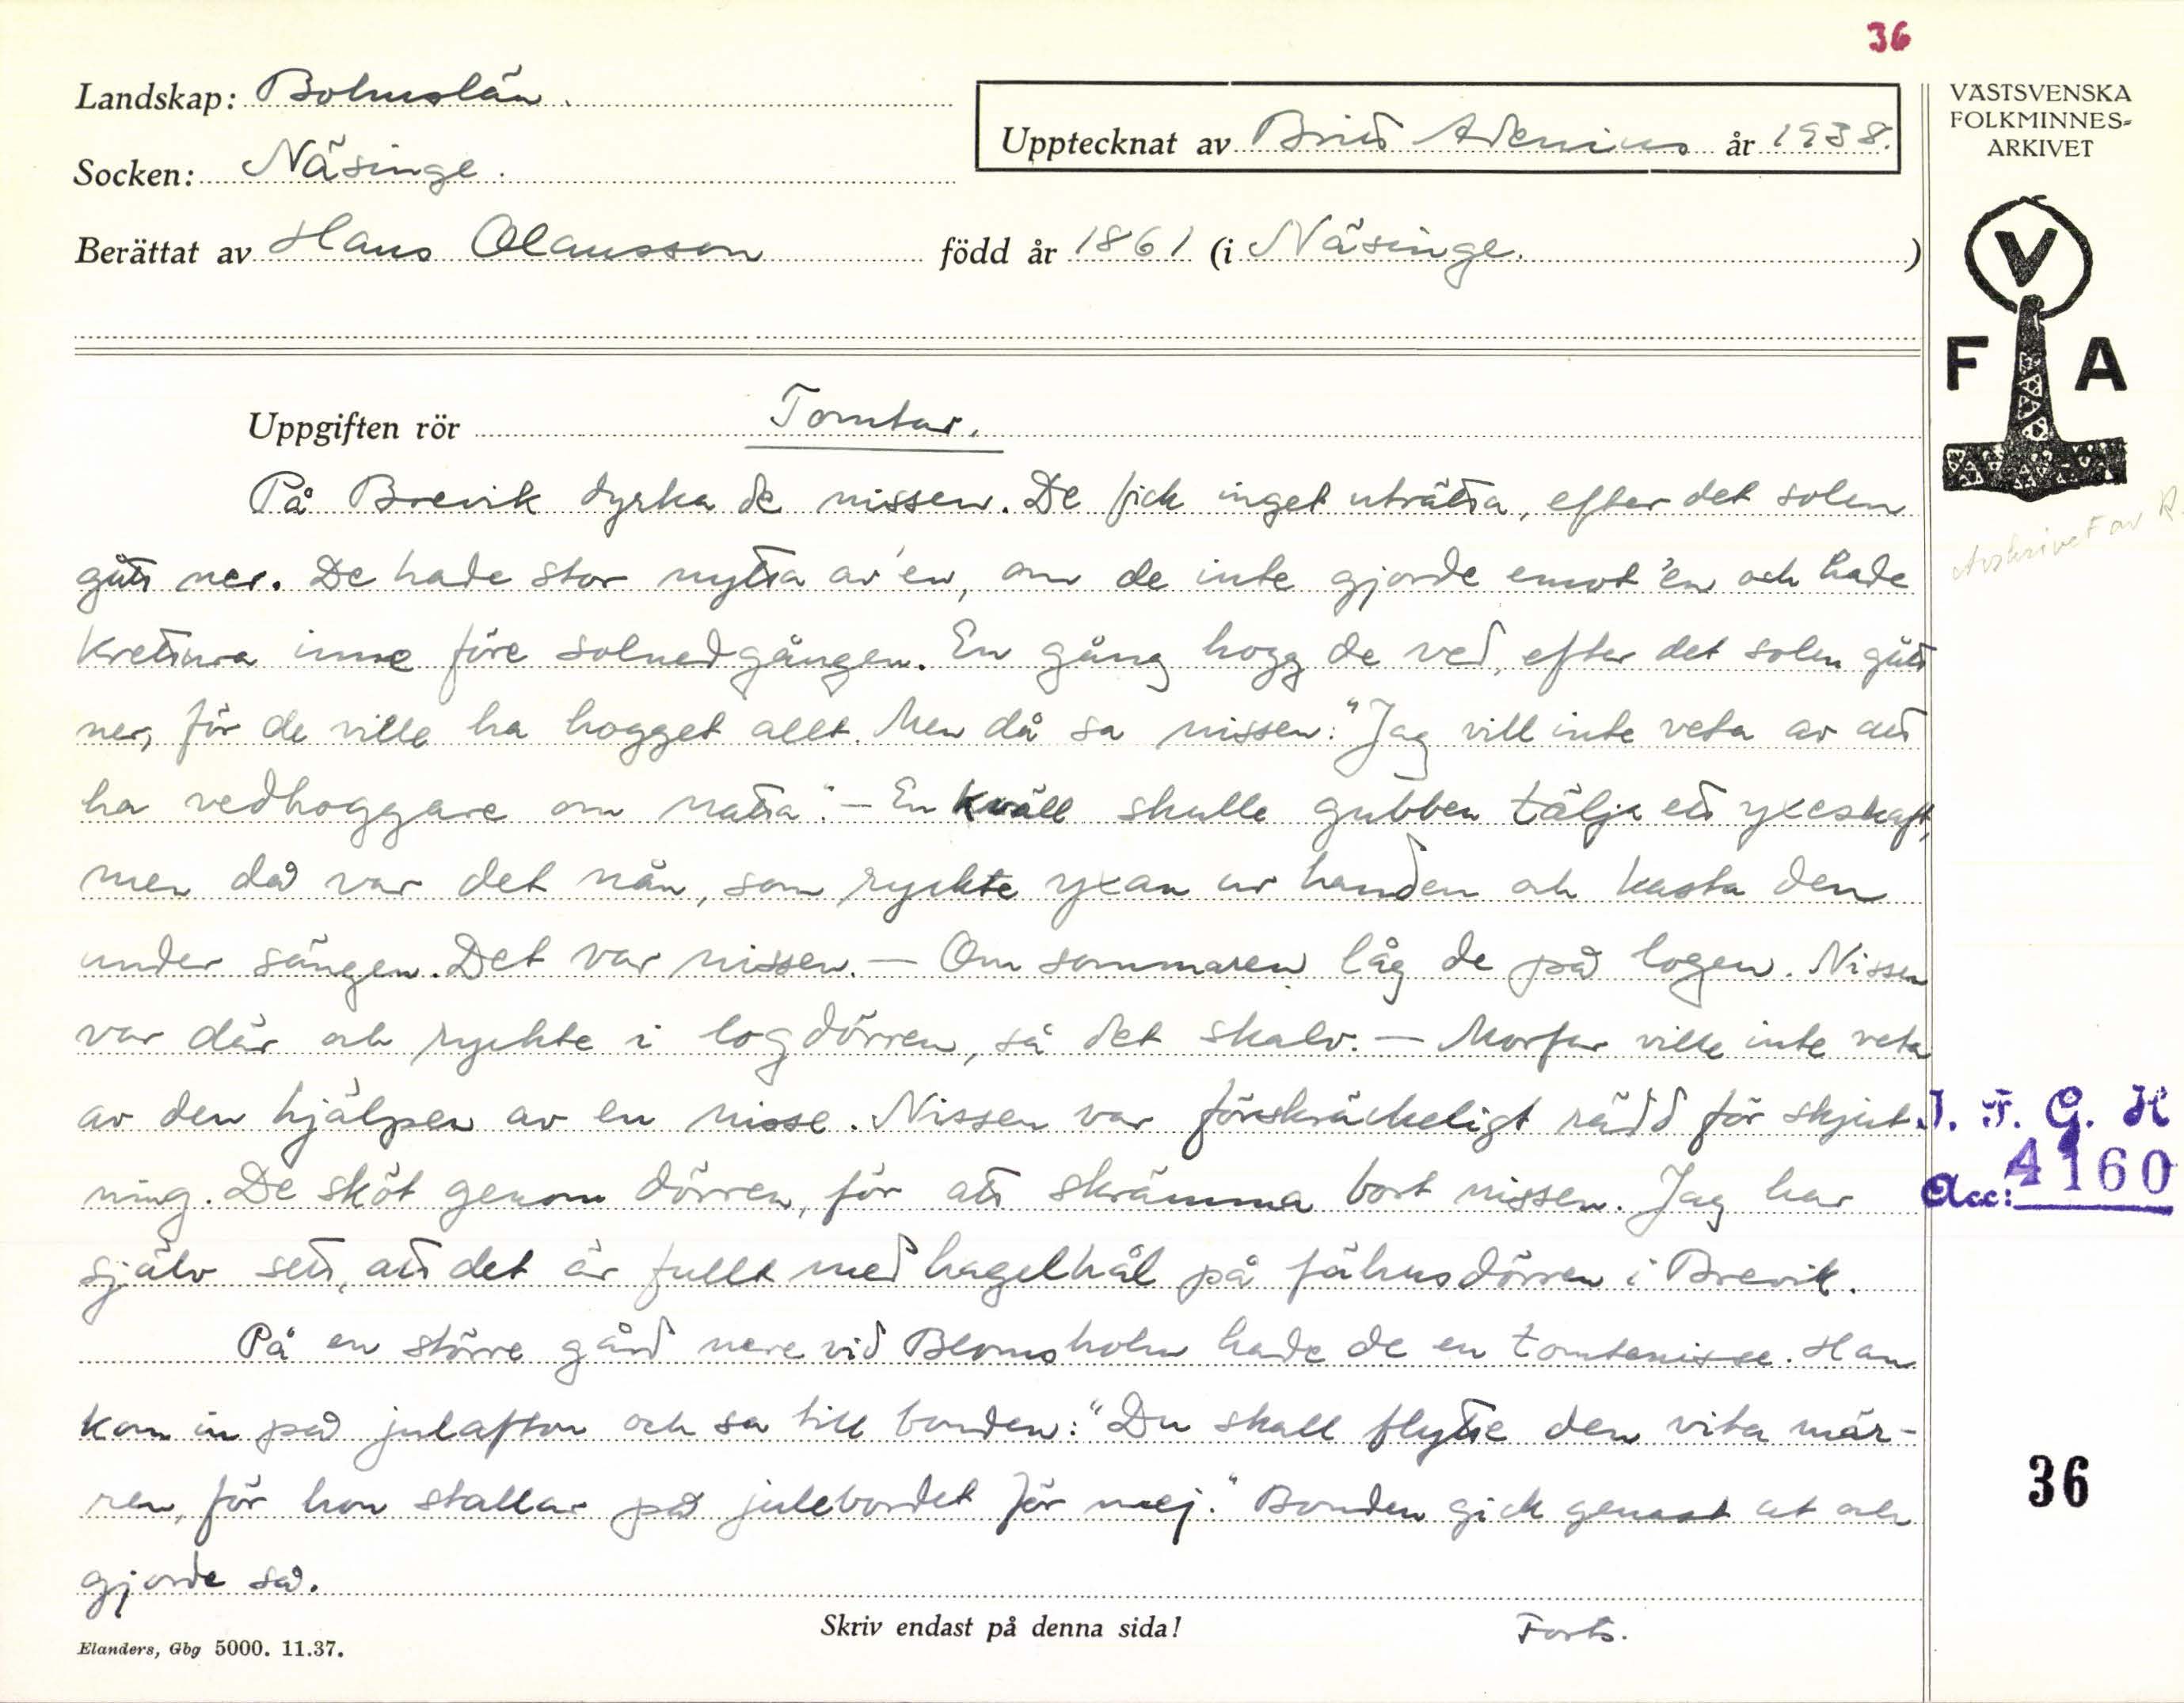 36
Landskap: Bohuslän.
Socken: Näsinge.
Upptecknat av Britt Adenius år 1938.
Berättat av Hans Olausson född år 1861 (i Näsinge.)
VÄSTSVENSKA
FOLKMINNES-
ARKIVET
V
F A
Avskrivet av R.
Uppgiften rör Tomtar.
På Brevik dyrka de nissen. De fick inget uträtta, efter det solen
gått ner. De hade stor nytta av'en, om de inte gjorde emot'en och hade
kretura inne före solnedgången. En gång hogg de ved, efter det solen gått
ner, för de ville ha hogget allt. Men då sa nissen: "Jag vill inte veta av att
ha vedhoggare om natta". - En kväll skulle gubben tälja ett yxeskaft,
men då var det nån, som ryckte yxan ur handen och kasta den
under sängen. Det var nissen. - Om sommaren låg de på logen. Nissen
var där och ryckte i logdörren, så det skalv. - Morfar ville inte veta
av den hjälpen av en nisse. Nissen var förskräckeligt rädd för skjut-
ning. De sköt genom dörren, för att skrämma bort nissen. Jag har
själv sett, att det är fullt med hagelhål på fähusdörren i Brevik.
På en större gård nere vid Blomsholm hade de en tomtenisse. Han
kom in på julafton och sa till bonden: "Du skall flytte den vita mär-
ren, för hon stallar på julebordet för mej." Bonden gick genast ut och
gjorde så.
I. F. G. H
Acc: 4160
36
Skriv endast på denna sida!
Forts.
Elanders, Gbg 5000. 11.37.